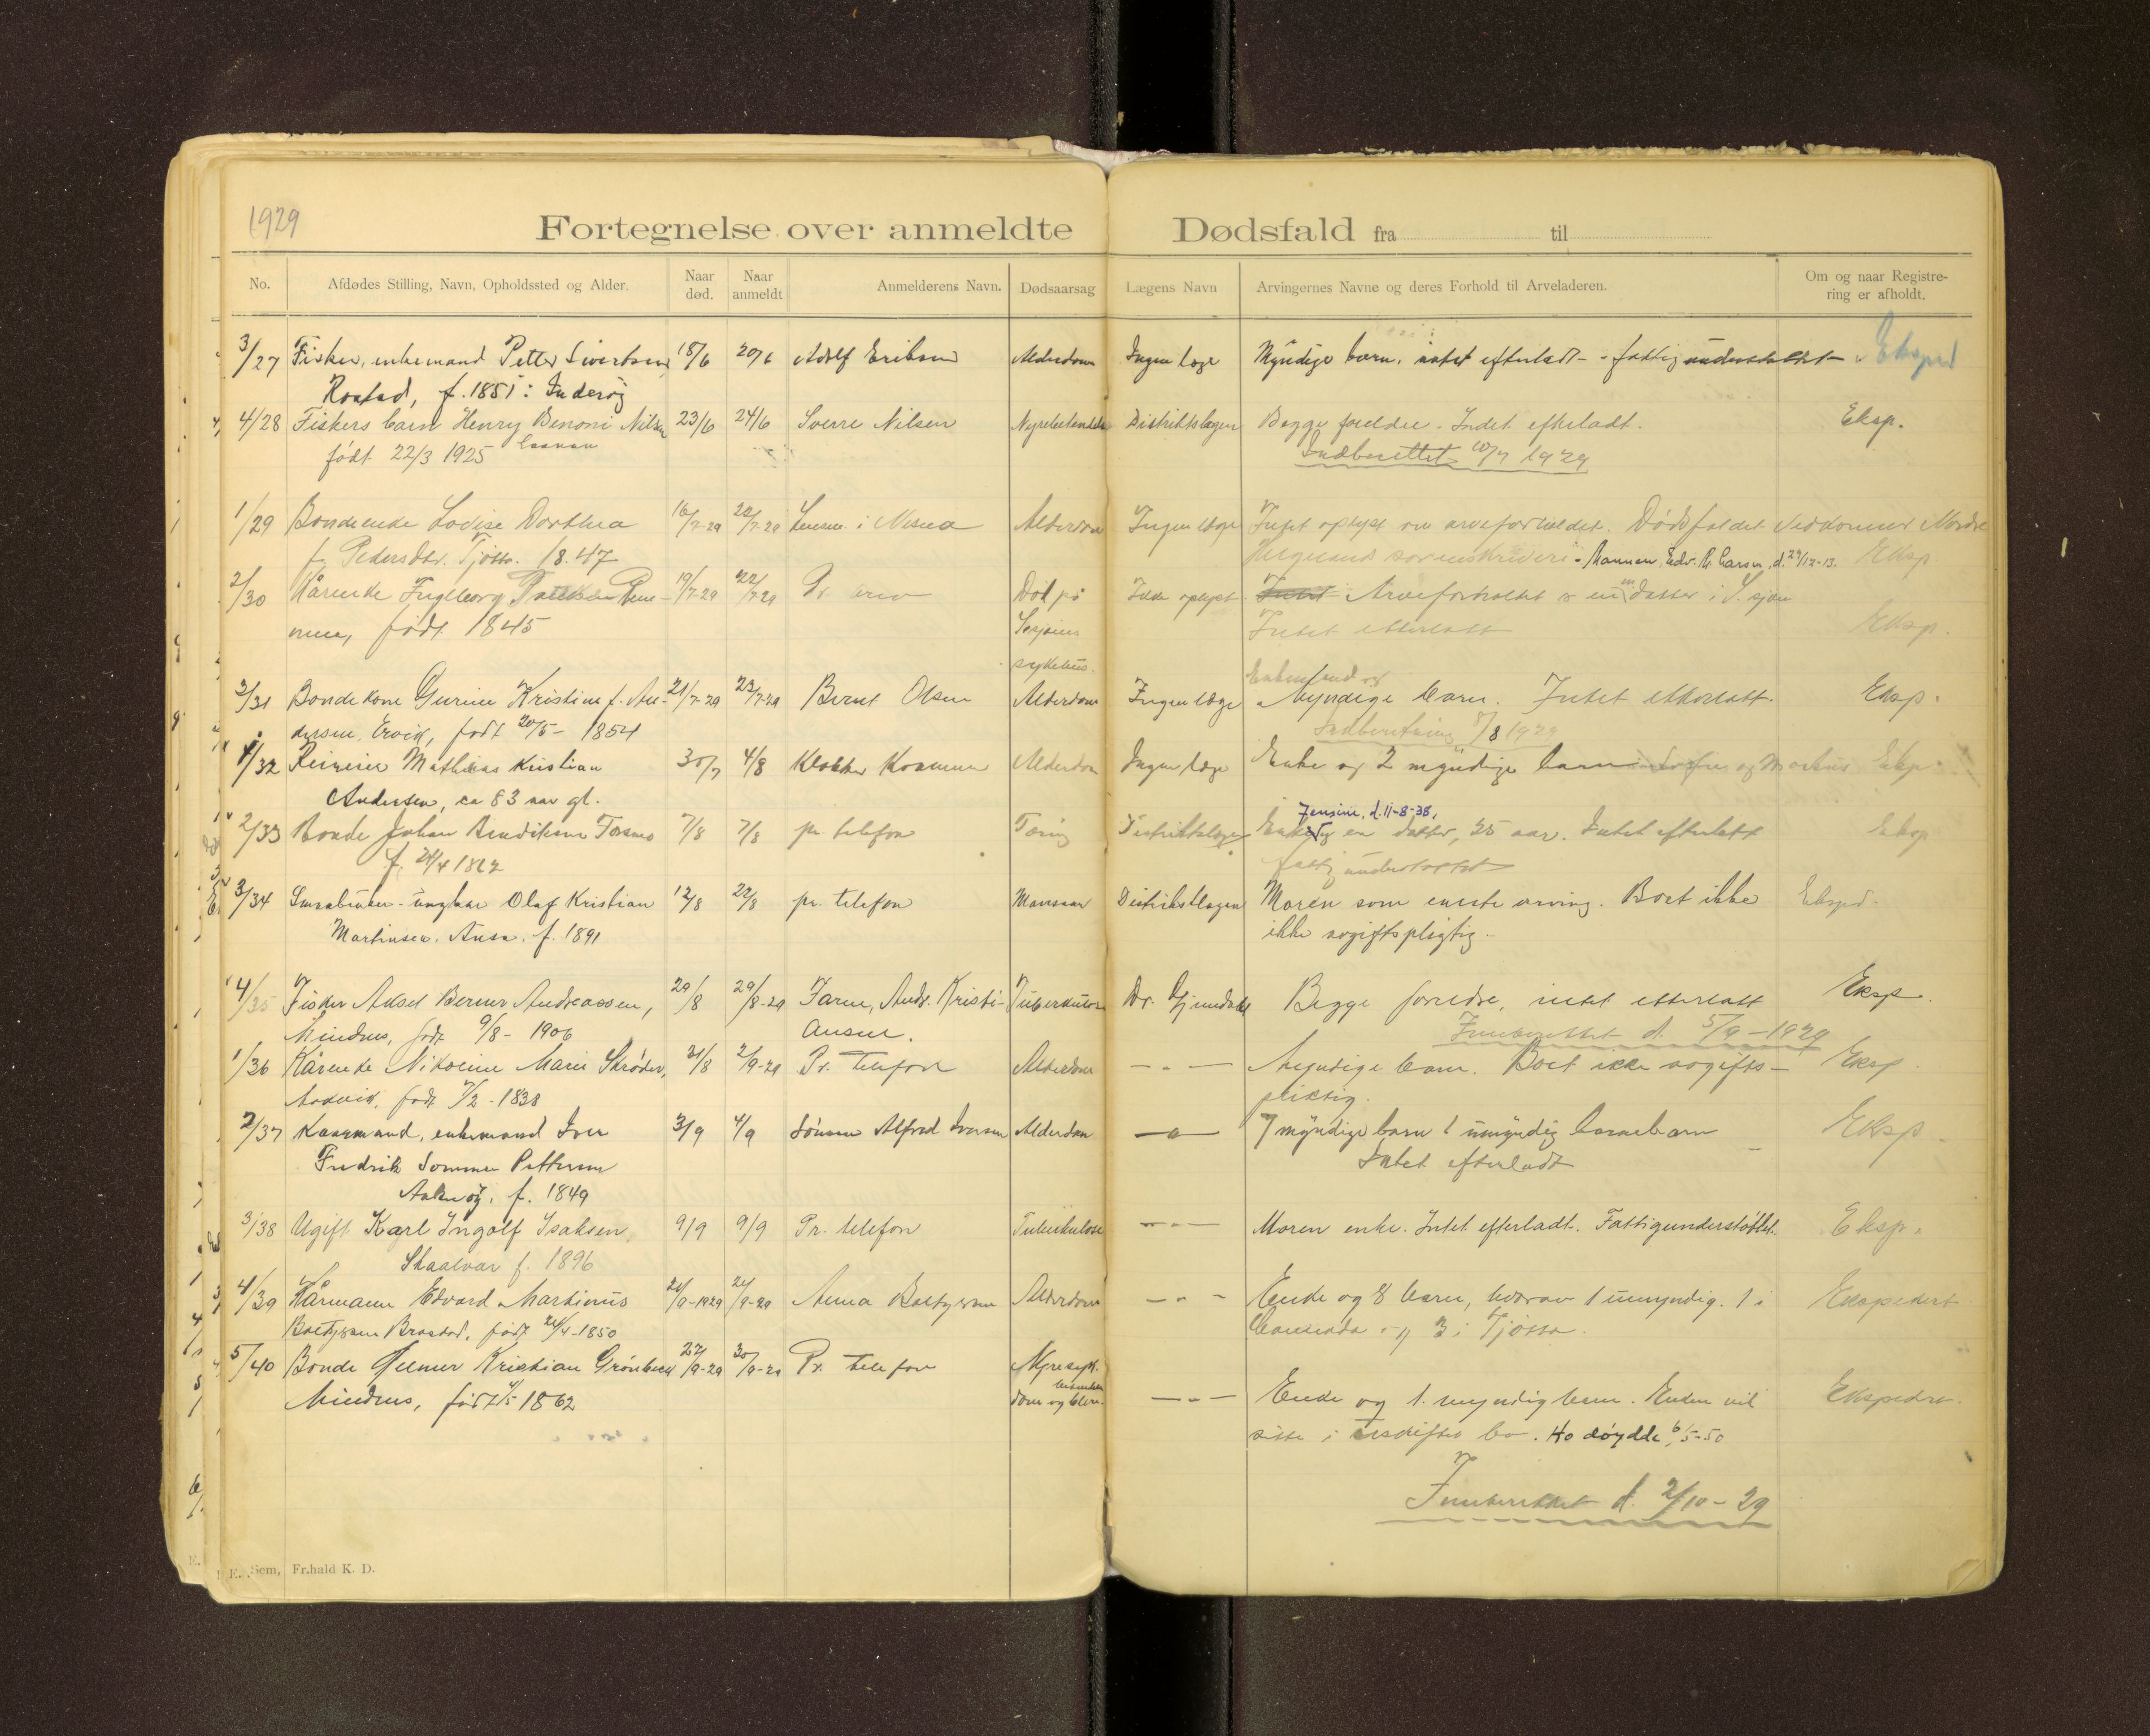 1929
Fortegnelse over anmeldte Dødsfald fra til
No. Afdødes Stilling, Navn, Opholdssted og Alder. Naar død. Naar anmeldt Anmelderens Navn. Dødsaarsag Lægens Navn Arvingernes Navne og deres Forhold til Arveladeren. Om og naar Registrering er afholdt.
3/27 Fisker, enkemand Petter Sivertsen 18/6 20/6 Adolf Eriksen Alderdom Ingen læge Myndige barn, intet efterladt - fattigunderstøttet Eksped
f. 1851
4/28 Fiskers barn Henry Benoni Nilsen 23/6 24/6 Sverre Nilsen Distriktslægen Begge forældre. Intet efterladt. Eksp.
født 22/3 1925
Indberettet 10/7 1929
1/29 Bondeenke Lovise Dorthea 16/7-29 22/7-29 i Nesna Alderdom Ingen læge Intet oplyst om arveforholdet. Dødsfaldet vedkommer Nordre
f. Pedersdtr. Tjøtta. 1847 Helgelands sorenskriveri - Mannen, Edv. d. 29/12-13. Eksp
2/30 Kårenke Ingeborg 19/7-29 22/7-29 Pr. brev Død på Ikke oplyst Arveforholdet
født 1845 sykehus. Intet etterlatt Eksp.
3/31 Bondekone Gurine Kristine f. An- 21/7-29 23/7-29 Bernt Olsen Alderdom Ingen læge Enkemand og myndige barn. Intet etterlatt. Eksp.
dersen, Ervik, født 20/5- 1854
Indberetning 8/8 1929
1/32 Mathias Kristian 30/7 4/8 Klokker Alderdom Ingen læge Enke og 2 myndige barn og Markus Eksp.
Andersen, ca 83 aar gl.
2/33 Bonde Johan Bendiksen Forsmo 7/8 7/8 pr telefon Tæring Distriktslægen Enke og en datter, 25 aar. Intet efterlatt Eksp
Jensine, d. 11-8-38.
f. 24/4 1862 fattigunderstøttet
3/34 Smaabruker - ungkar Olaf Kristian 12/8 22/8 pr. telefon Distriktslægen Moren som eneste arving. Boet ikke Eksped.
Martinsen. f. 1891 ikke avgiftspligtig.
4/35 Fisker Aksel Berner Andreassen, 29/8 29/8-29 Faren, Andr. Kristi- Tuberkulose Dr. Begge foreldre, intet etterlatt Eksp.
Mindnes, født 9/8- 1906 ansen. Innberettet d. 5/9-1929
1/36 Kårenke Nikoline Marie Skrøder, 31/8 2/9-29 Pr. telefon Alderdom -"- Myndige barn. Boet ikke avgifts- Eksp
født 7/2-1838 pliktig.
2/37 Kaarmand, enkemand Iver 3/9 4/9 Sønnen Alfred Iversen Alderdom -"- 7 myndige barn 1 umyndig barnebarn Eksp
Fredrik Sommer Pettersen Intet efterladt
f. 1849
3/38 Ugift Karl Ingolf Isaksen, 9/9 9/9 Pr. telefon Tuberkulose -"- Moren enke. Intet efterladt. Fattigunderstøttet. Eksp.
Skaalvær f. 1896
4/39 Kårmann Edvard Martinus 21/9-1929 24/9-29 Anna Alderdom -"- Enke og 8 barn, hvorav 1 umyndig. 1 i Ekspedert
født 21/4-1850 og 3 i Tjøtta.
5/40 Bonde Kristian Grønbeck 27/9-29 30/9-29 Pr. telefon Nyresyk- -"- Enke og 1. umyndig barn. Enken vil Ekspedert.
Mindnes, født 1862 dom og sitte i uskiftet bo. Ho døydde 6/5-50
Innberettet d. 2/10-29
E. Sem, Fr.hald K. D.